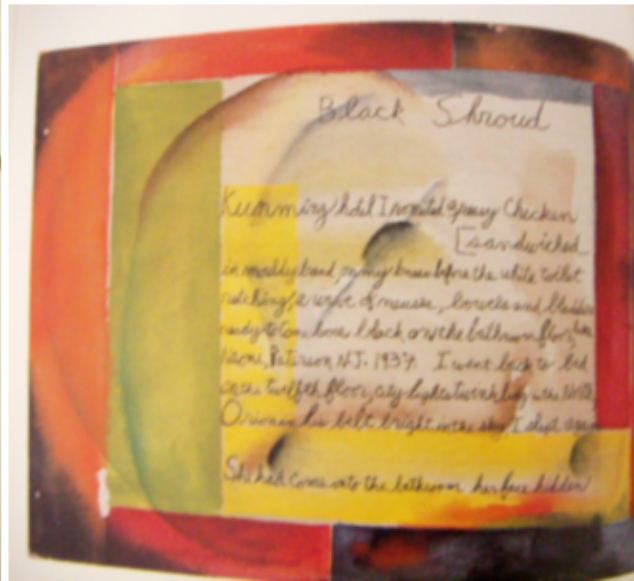 Black Shroud
Kunming hotel I vomited greasy Chicken
[sandwiched
in moldy bread, on my knees before the white toilet
retching, a wave of nausea, bowels and bladder
ready to loose black on the bathroom floor
Naomi, Paterson N.J. 1937. I went back to bed
on the twelfth floor, city lights twinkling in the North,
Orion in his belt bright in the sky, I slept again
She had come into the bathroom her face hidden